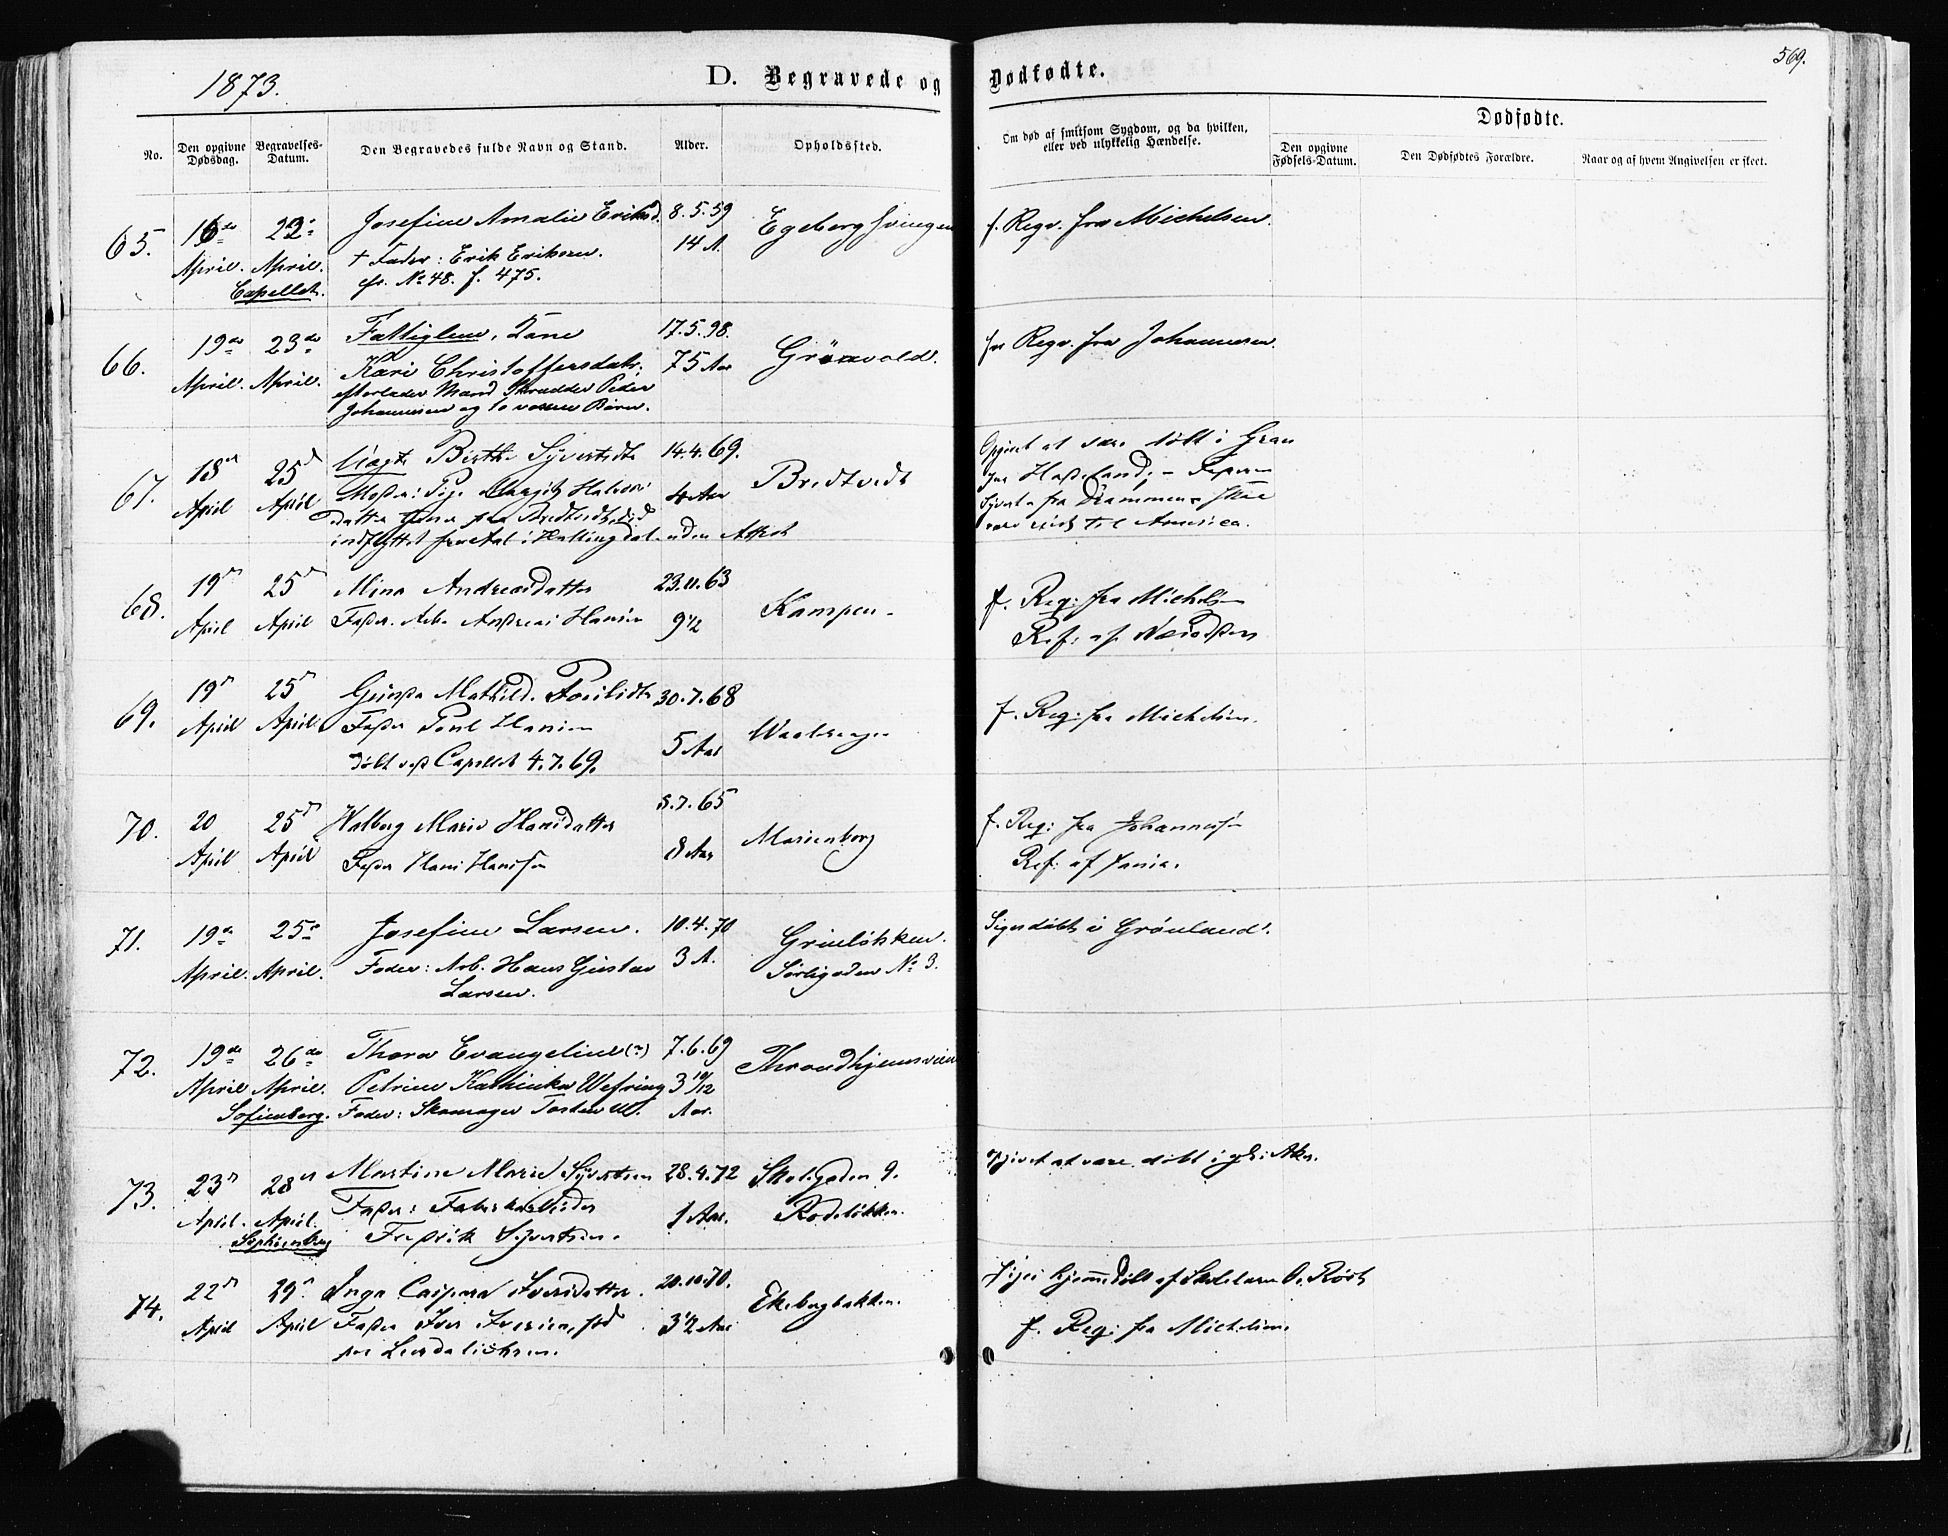 1873.
D. Begravede og Dødfødte.
569.
No.
Den opgivne Dødsdag.
Begravelses-Datum.
Den Begravedes fulde Navn og Stand.
Alder.
Opholdssted.
Om død af smitsom Sygdom, og da hvilken, eller ved ulykkelig Hændelse.
Dødfødte.
Den opgivne Fødsels-Datum.
Den Dødfødtes Forældre.
Naar og af hvem Angivelsen er skeet.
65.
16de April.
22. April.
Capellet.
Josefine Amalie Eriksd.
+ Fader: Erik Eriksen.
cfr. No 48. f. 475.
8.5.59
14 A.
Egebergsvingen
f. Regr. fra Michelsen.
66.
19de April.
23de April.
Fattiglem, Kone
Kari Christoffersdatr.
efterlader Mand Skrædder Peder
Johannesen og to voxne Børn.
17.5.98.
75 Aar
Grønvold.
f. Regr. fra Johannesen
67.
18 April
25 April
Birthe Syvertsdtr
Moder: Pige Margit Halvors-
datter
indflyttet fra Aal i Hallingdal uden Attest
14.4.69.
4 Aar
Bredtvedt
Opgivet at være døbt i Gran
Hadeland. - Faderen
Syvert fra Drammen skal
være reist til America.
68.
19 April
25 April
Mina Andreasdatter
Fader. Arb. Andreas Hansen
23.11.63
9 1/2
Kampen -
f. Reg: fra Michelsen
Ref: af
69.
19 April
25 April
Mathild.
Fader Poul Hansen
døbt ved Capellet 4.7.69.
30.7.68
5 Aar
f. Reg: fra Michelsen.
70.
20 April
25 April
Valborg Marie Hansdatter
Fader Hans Hansen
8.7.65
8 Aar
Marienborg
f. Reg: fra Johannesen
Ref: af
71.
19de April.
25de April.
Josefine Larsen.
Fader: Arb. Hans Gustav
Larsen.
10.4.70
3 A.
Grünløkken.
Sørligaden No 3.
Siges døbt i Grønland.
72.
19de April
26de April.
Sofienberg.
Thora Evangeline (?)
Petrine Kathinka Wefring
Fader: Skomager Torsten W.
7.6.69
3 10/12 Aar.
Throndhjemsveien
73.
23 April.
28 April.
Sophienberg
Martine Marie Syvertsen
Fader: Fabrikarbeider
Fredrik Syvertsen.
28.4.72
1 Aar.
Skolegaden 9.
Rodeløkken.
opgivet at være døbt i Aker.
74.
22 April
29 April
Inga Caspara Iversdatter.
Fader Iver Iversen, fød
20.10.70.
3 1/2 Aar
Ekebergbakken.
Siges hjemmedøbt af Skolelærer O. Røst
f. Reg: fra Michelsen.